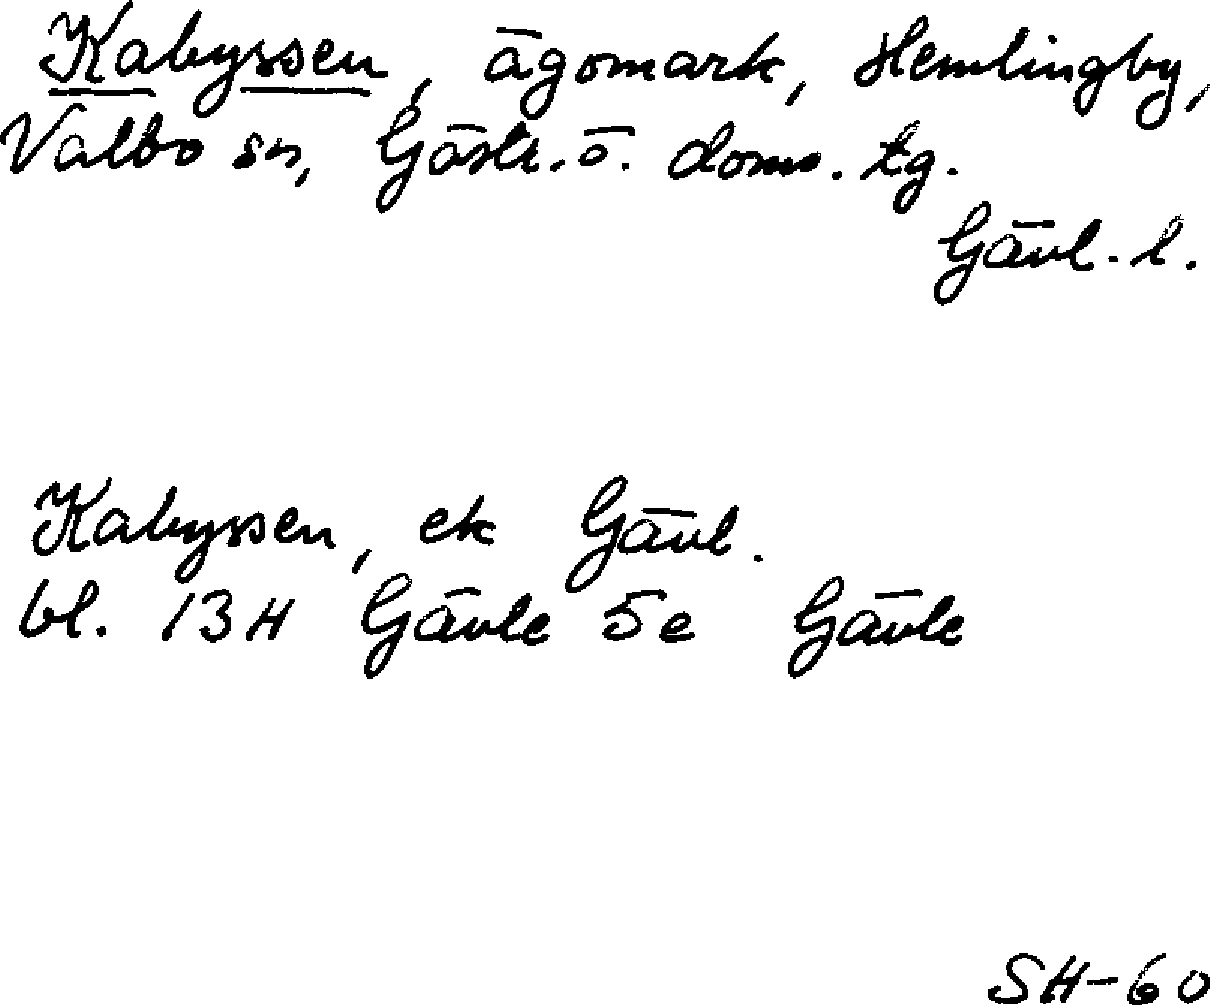 Kabyssen, ägomark, Hemlingby,
Valbo sn, Gästr. ö. doms. tg.
Gävl. l.
Kabyssen, ek Gävl.
bl. 13H Gävle 5e Gävle
SH-60